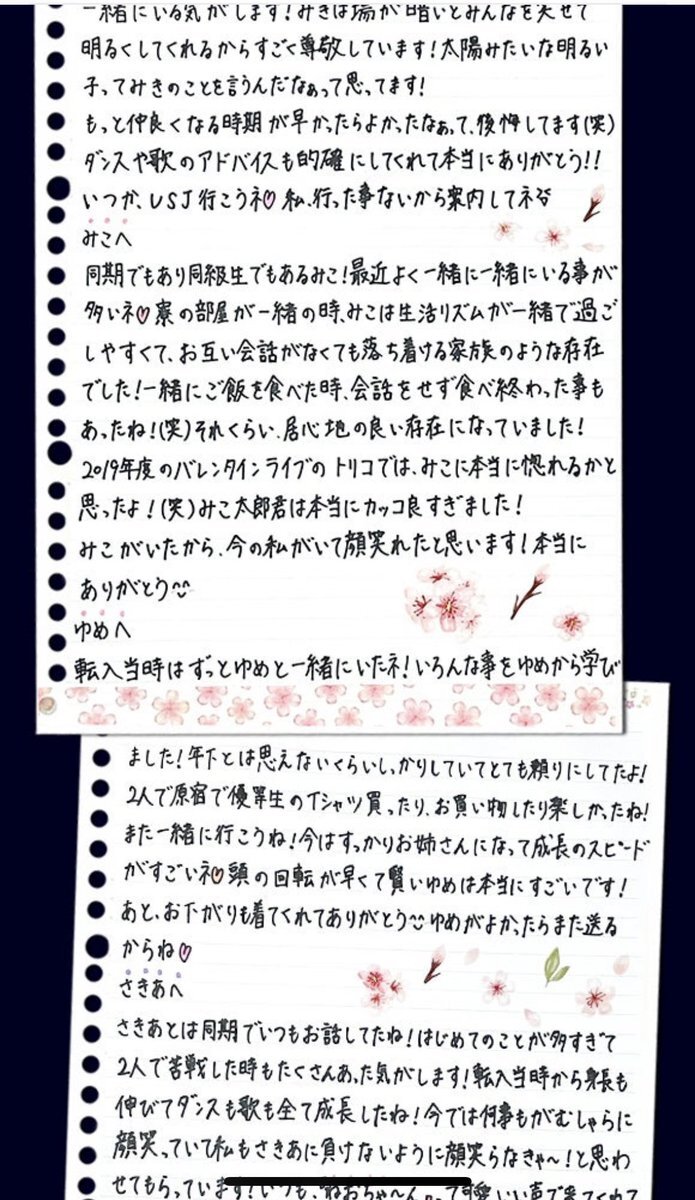 一緒にいる気がします!みきは場が暗いとみんなを笑せて
明るくしてくれるからすごく尊敬しています!太陽みたいな明るい
子ってみきのことを言うんだなぁって思ってます!
もっと仲良くなる時期が早かったらよかったなぁって、後悔してます(笑)
ダンスや歌のアドバイスも的確にしてくれて本当にありがとう!!
いつか、USJ行こうネ♡私、行った事ないから案内してネ
みこへ
同期でもあり同級生でもあるみこ!最近よく一緒に一緒にいる事が
多いネ♡寮の部屋が一緒の時、みこは生活リズムが一緒で過ご
しやすくて、お互い会話がなくても落ち着ける家族のような存在
でした!一緒にご飯を食べた時、会話をせず食べ終わった事も
あったね!(笑)それくらい、居心地の良い存在になっていました!
2019年度のバレンタインライブのトリコでは、みこに本当に惚れるかと
思ったよ!(笑)みこ太郎君は本当にカッコ良すぎました!
みこがいたから、今の私がいて顔笑れたと思います!本当に
ありがとう
ゆめへ
転入当時はずっとゆめと一緒にいたネ!いろんな事をゆめから学び
ました!年下とは思えないくらいしっかりしていてとても頼りにしてたよ!
2人で原宿で優等生のTシャツ買ったり、お買い物したり楽しかったね!
また一緒に行こうね!今はすっかりお姉さんになって成長のスピード
がすごいネ♡頭の回転が早くて賢いゆめは本当にすごいです!
あと、お下がりも着てくれてありがとう ゆめがよかったらまた送る
からね♡
さきあへ
さきあとは同期でいつもお話してたね!はじめてのことが多すぎて
2人で苦戦した時もたくさんあった気がします!転入当時から身長も
伸びてダンスも歌も全て成長したね!今では何事もがむしゃらに
顔笑っていて私もさきあに負けないように顔笑らなきゃ〜!と思わ
せてもらっています!いつも、